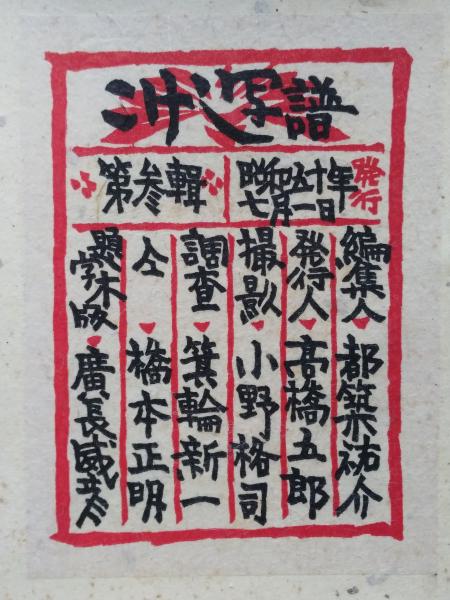 こけし写譜
第参輯
昭和五十年
七月一日
発行
編集人 都築祐介
発行人 高橋五郎
撮影 小野裕司
調査 箕輪新一
仝 橋本正明
題字木版 廣長威彦